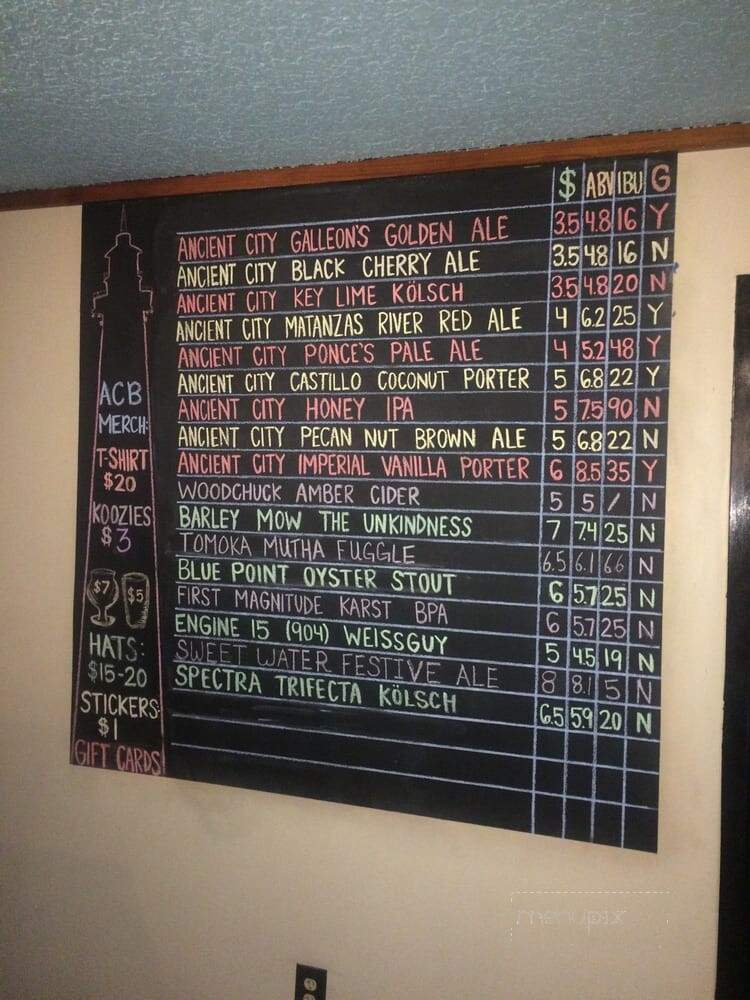 $ ABV IBU G
ANCIENT CITY GALLEON'S GOLDEN ALE 3.5 4.8 16 Y
ANCIENT CITY BLACK CHERRY ALE 3.5 4.8 16 N
ANCIENT CITY KEY LIME KÖLSCH 3.5 4.8 20 N
ANCIENT CITY MATANZAS RIVER RED ALE 4 6.2 25 Y
ANCIENT CITY PONCE'S PALE ALE 4 5.2 48 Y
ANCIENT CITY CASTILLO COCONUT PORTER 5 6.8 22 Y
ANCIENT CITY HONEY IPA 5 7.5 90 N
ANCIENT CITY PECAN NUT BROWN ALE 5 6.8 22 N
ANCIENT CITY IMPERIAL VANILLA PORTER 6 8.5 35 Y
WOODCHUCK AMBER CIDER 5 5 / N
BARLEY MOW THE UNKINDNESS 7 7.4 25 N
TOMOKA MUTHA FUGGLE 6.5 6.1 66 N
BLUE POINT OYSTER STOUT 6 5.7 25 N
FIRST MAGNITUDE KARST BPA 6 5.7 25 N
ENGINE 15 (904) WEISSGUY 5 4.5 19 N
SWEET WATER FESTIVE ALE 8 8.1 5 N
SPECTRA TRIFECTA KÖLSCH 6.5 5.9 20 N
ACB
MERCH:
T-SHIRT
$20
KOOZIES
$3
$7 $5
HATS:
$15-20
STICKERS:
$1
GIFT CARDS
menupix